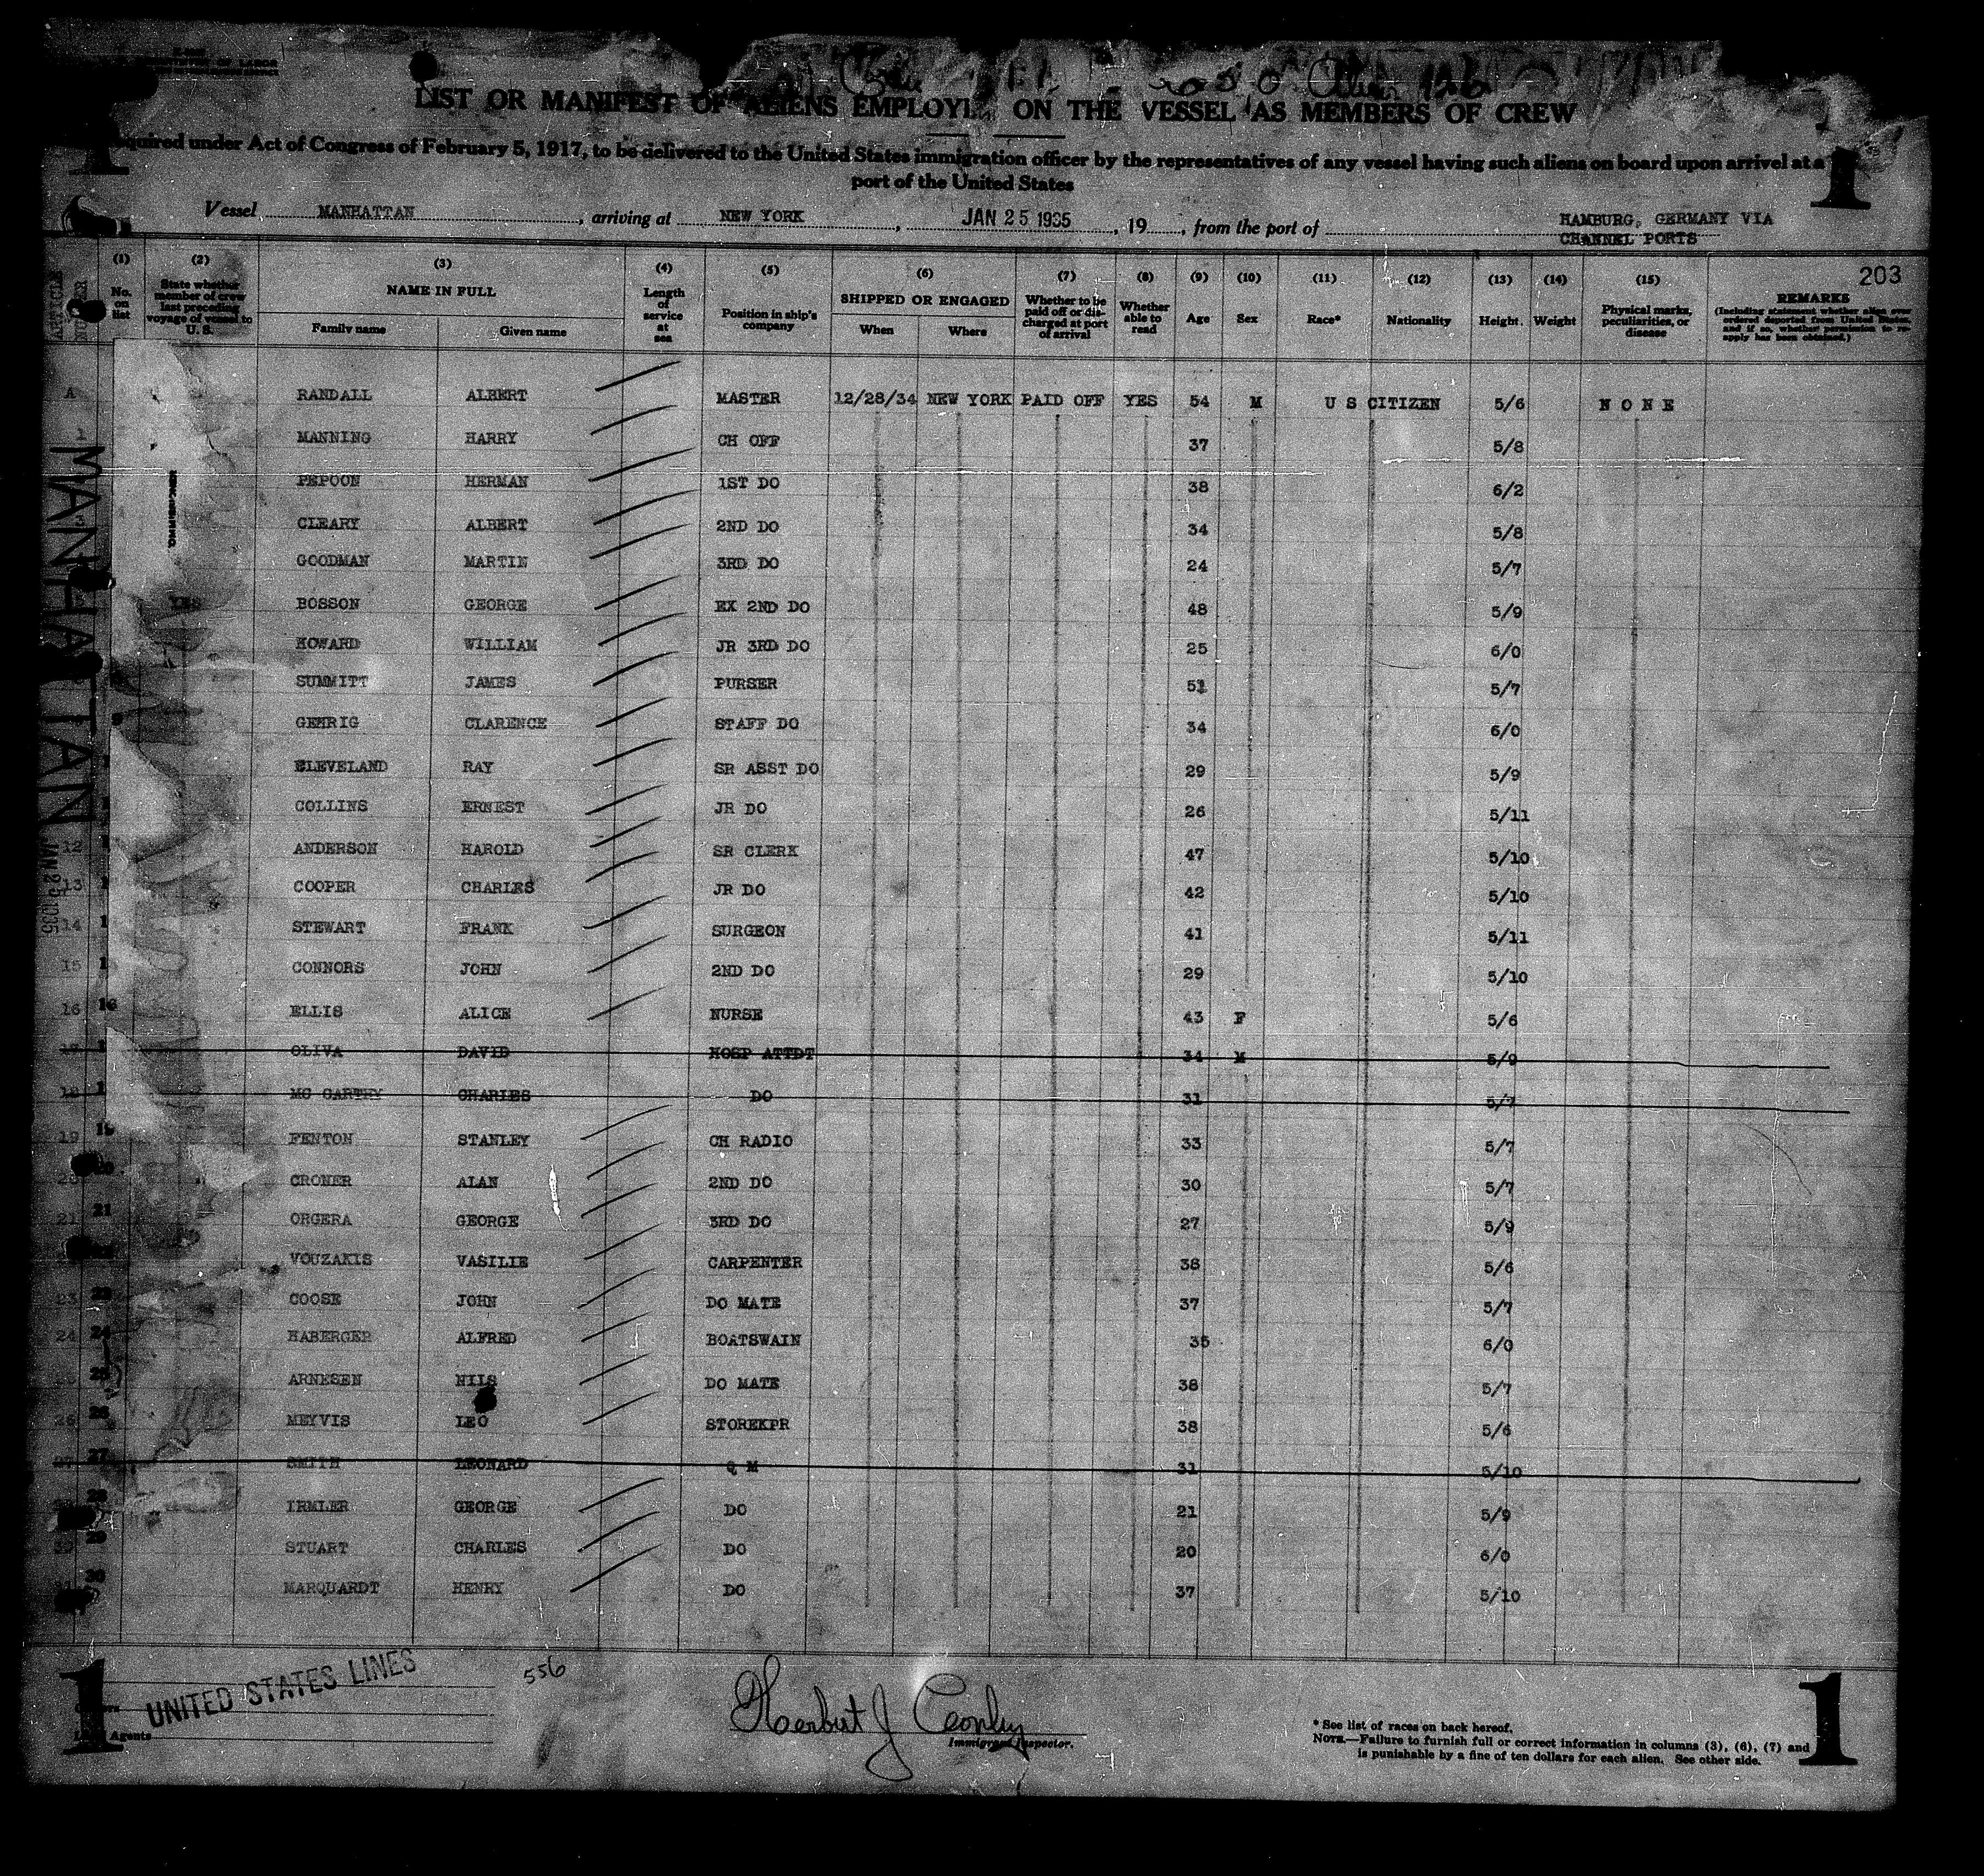 LIST OR MANIFEST OF ALIENS EMPLOYE ON THE VESSEL AS MEMBERS OF CREW
quired under Act of Congress of February 5, 1917, to be delivered to the United States immigration officer by the representatives of any vessel having such aliens on board upon arrival at a
port of the United States
Vessel MANHATTAN, arriving at NEW YORK, JAN 25 1935, 19, from the port of HAMBURG, GERMANY VIA
CHANNEL PORTS
203
(1) No. on list
(2) State whether member of crew last preceding voyage of vessel to U. S.
(3) NAME IN FULL Family name Given name
(4) Length of service at sea
(5) Position in ship's company
(6) SHIPPED OR ENGAGED When Where
(7) Whether to be paid off or discharged at port of arrival
(8) Whether able to read
(9) Age
(10) Sex
(11) Race*
(12) Nationality
(13) Height.
(14) Weight
(15) Physical marks, peculiarities, or disease
REMARKS (Including statement whether alien ever ordered deported from United States, and if so, whether permission to reapply has been obtained.)
RANDALL ALBERT MASTER 12/28/34 NEW YORK PAID OFF YES 54 M U S CITIZEN 5/6 NONE
MANNING HARRY CH OFF 37 5/8
PEPOON HERMAN 1ST DO 38 6/2
CLEARY ALBERT 2ND DO 34 5/8
GOODMAN MARTIN 3RD DO 24 5/7
YES BOSSON GEORGE EX 2ND DO 48 5/9
HOWARD WILLIAM JR 3RD DO 25 6/0
SUMMITT JAMES PURSER 51 5/7
GEHRIG CLARENCE STAFF DO 34 6/0
CLEVELAND RAY SR ASST DO 29 5/9
COLLINS ERNEST JR DO 26 5/11
12 ANDERSON HAROLD SR CLERK 47 5/10
13 COOPER CHARLES JR DO 42 5/10
14 STEWART FRANK SURGEON 41 5/11
15 CONNORS JOHN 2ND DO 29 5/10
16 16 ELLIS ALICE NURSE 43 F 5/6
17 OLIVA DAVID HOSP ATTDT 34 M 5/9
18 MC CARTHY CHARLES DO 31 5/7
19 19 FENTON STANLEY CH RADIO 33 5/7
20 CRONER ALAN 2ND DO 30 5/7
21 21 ORGERA GEORGE 3RD DO 27 5/9
VOUZAKIS VASILIE CARPENTER 38 5/6
23 23 COOSE JOHN DO MATE 37 5/7
24 24 HABERGER ALFRED BOATSWAIN 35 6/0
25 ARNESEN NILS DO MATE 38 5/7
26 26 MEYVIS LEO STOREKPR 38 5/6
27 27 SMITH LEONARD Q M 31 5/10
28 IRMLER GEORGE DO 21 5/9
29 STUART CHARLES DO 20 6/0
30 MARQUARDT HENRY DO 37 5/10
MANHATTAN
JAN 25 1935
1
1
UNITED STATES LINES
Agents
556
Herbert J Conley
Immigrant Inspector.
* See list of races on back hereof.
NOTE.—Failure to furnish full or correct information in columns (3), (6), (7) and
is punishable by a fine of ten dollars for each alien. See other side.
1
1